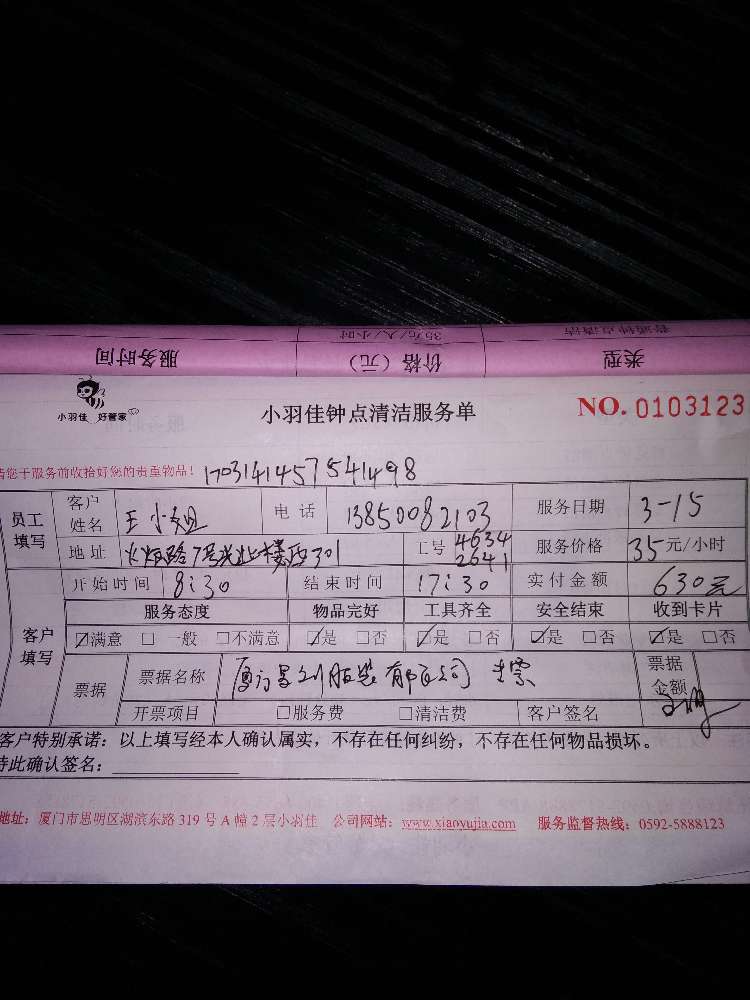 普通钟点清洁 35元/人/小时
类型 价格（元） 服务时间
小羽佳 好管家
小羽佳钟点清洁服务单
NO. 0103123
请您于服务前收拾好您的贵重物品！ 1703141457541498
员工填写 客户姓名 王小姐 电话 13850082103 服务日期 3-15
地址 火炬路7号光业楼西301 工号 4634 2641 服务价格 35元/小时
开始时间 8:30 结束时间 17:30 实付金额 630元
客户填写 服务态度 物品完好 工具齐全 安全结束 收到卡片
☑满意 □一般 □不满意 ☑是 □否 ☑是 □否 ☑是 □否 ☑是 □否
票据 票据名称 厦门 服装有限公司 票据金额
开票项目 □服务费 □清洁费 客户签名
客户特别承诺：以上填写经本人确认属实，不存在任何纠纷，不存在任何物品损坏。
特此确认签名：
地址：厦门市思明区湖滨东路 319 号 A 幢 2 层小羽佳 公司网站：www.xiaoyujia.com 服务监督热线：0592-5888123